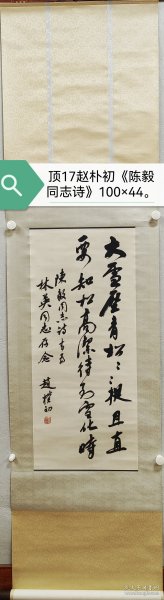 顶17赵朴初《陈毅
同志诗》100×44。
大雪压青松〻挺且直
要知松高洁待到雪化时
陈毅同志诗书为
林英同志存念
赵朴初